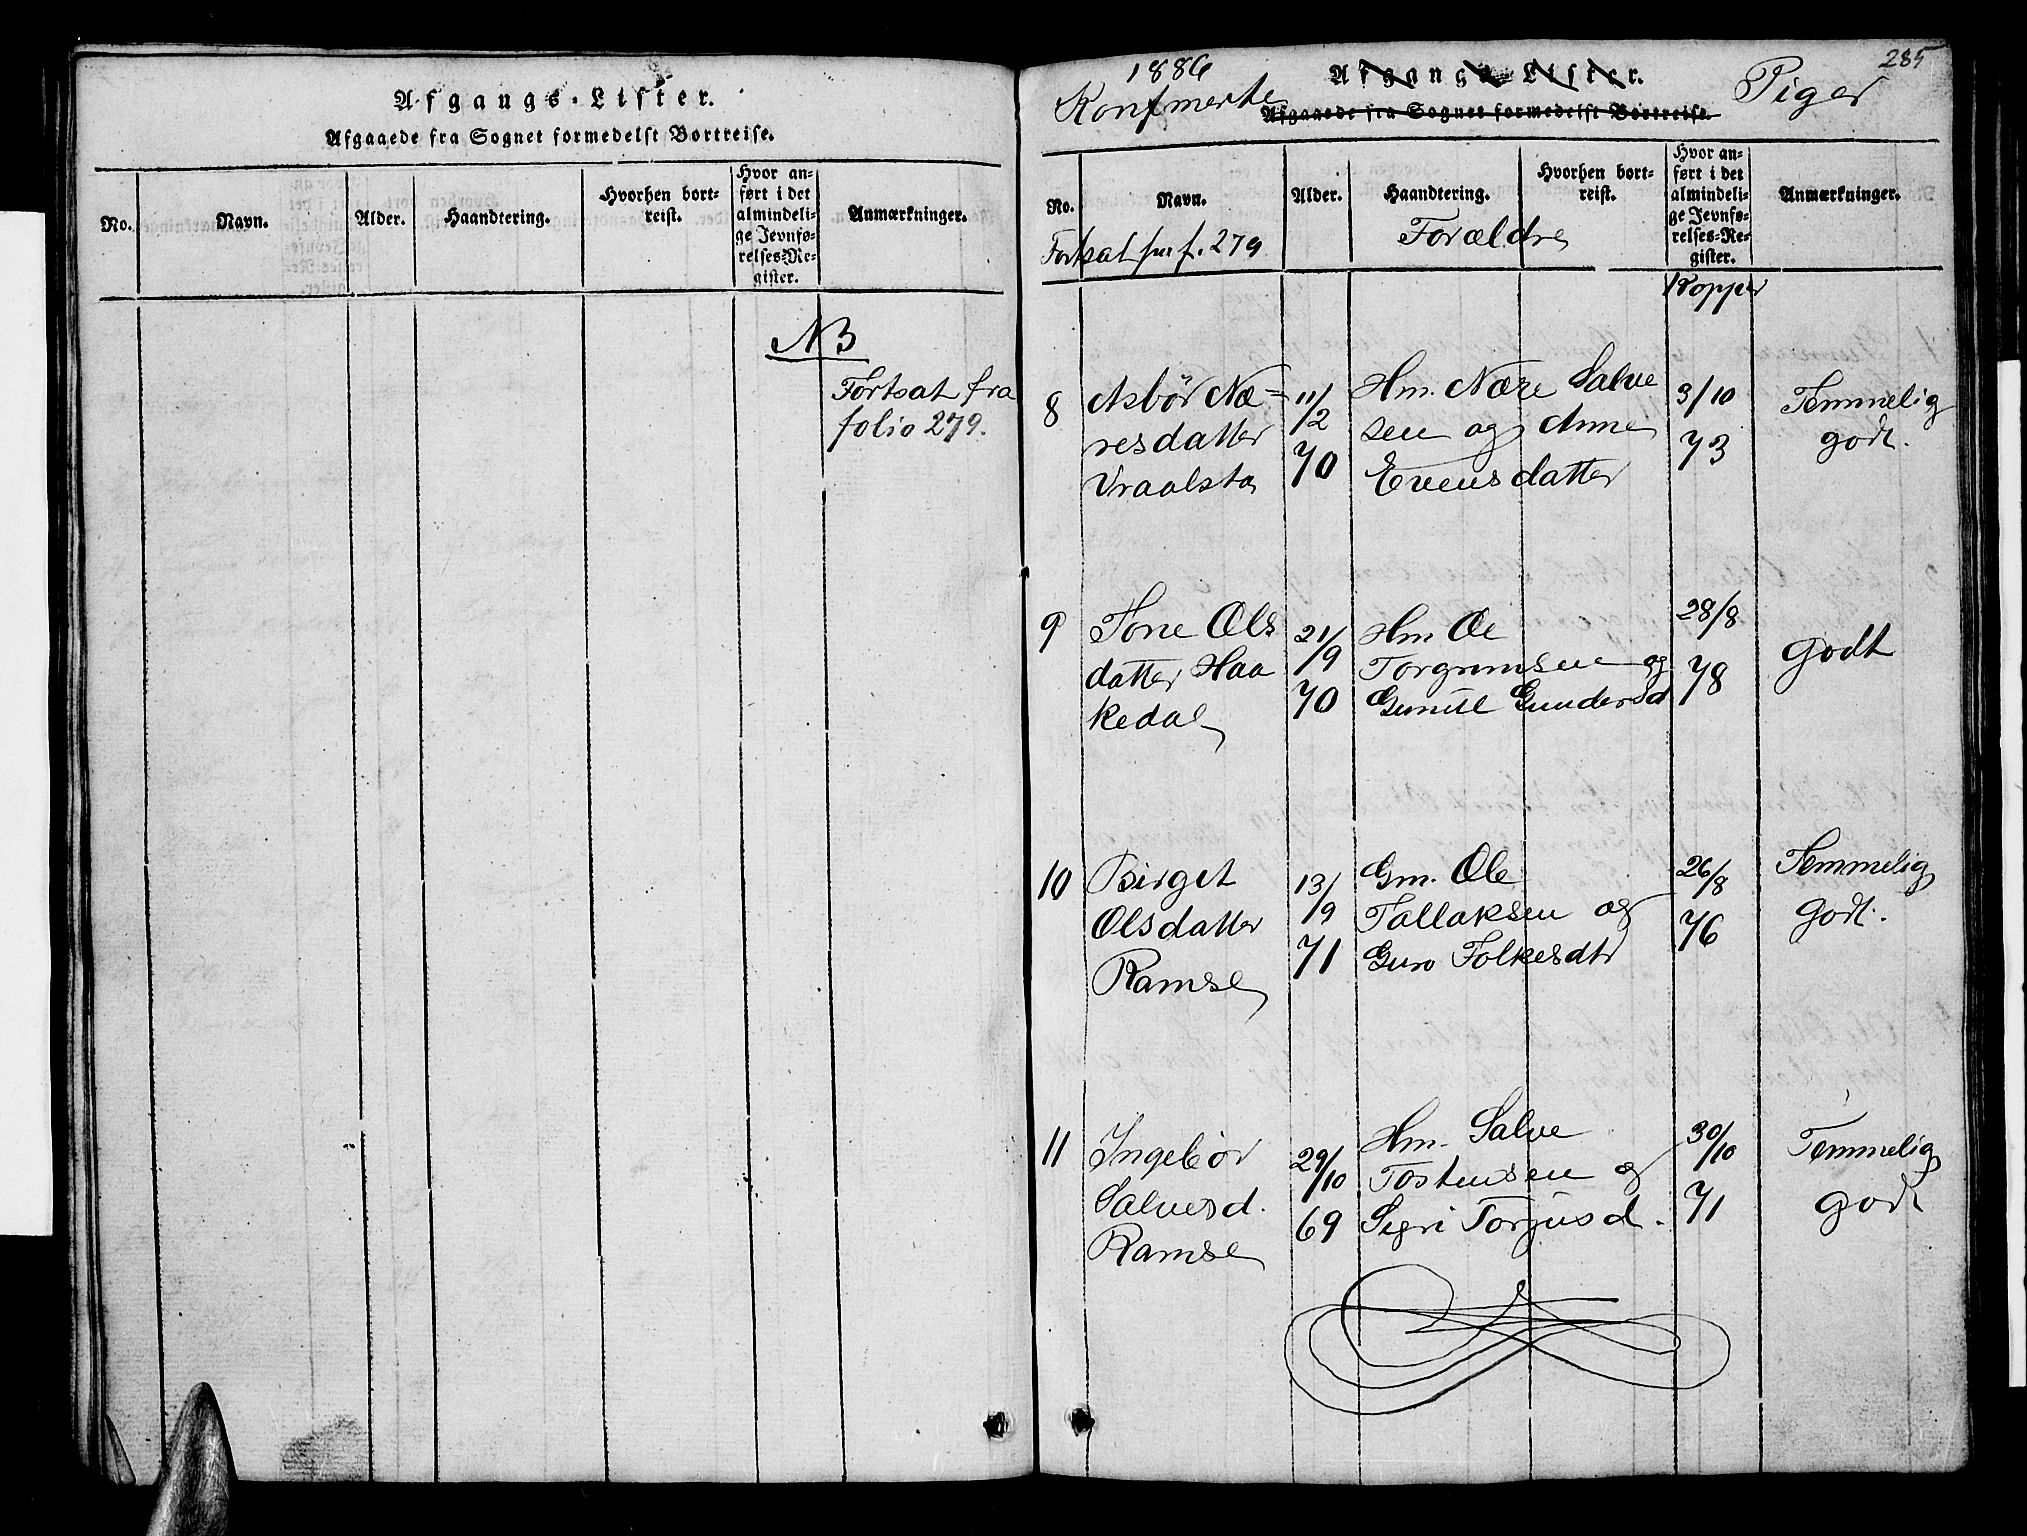 Afgangs-Lister.
Afgaaede fra Sognet formedelst Bortreise.
No.
Navn.
Alder.
Haandtering.
Hvorhen bort-
reist.
Hvor an-
ført i det
almindeli-
ge Jevnfø-
relses-Re-
gister.
Anmærkninger.
NB
Fortsat fra
folio 279.
285
1886
Afgangs-Lister.
Konfmerte
Piger
Afgaaede fra Sognet formedelst Bortreise.
No.
Navn.
Alder.
Haandtering.
Hvorhen bort-
reist.
Hvor an-
ført i det
almindeli-
ge Jevnfø-
relses-Re-
gister.
Anmærkninger.
Fortsat f. 279
Forældre
Kopper
8
Asbør Næ-
resdatter
Vraalsta
11/2
70
Hm. Nære Salve
sen og Anne
Evensdatter
3/10
73
Temmelig
godt.
9
Tone Ols
datter Haa
kedal
21/9
70
Hm. Ole
Torgrimsen og
Gunild Gundersd
28/8
78
Godt
10
Birget
Olsdatter
Ramse
13/9
71
Gm. Ole
Tallaksen og
Guro Folkesdtr
26/8
76
Temmelig
Godt.
11
Ingebør
Salvesd.
Ramse
29/10
69
Hm. Salve
Tostensen og
Sigri Torjusd.
30/10
71
Temmelig
godt